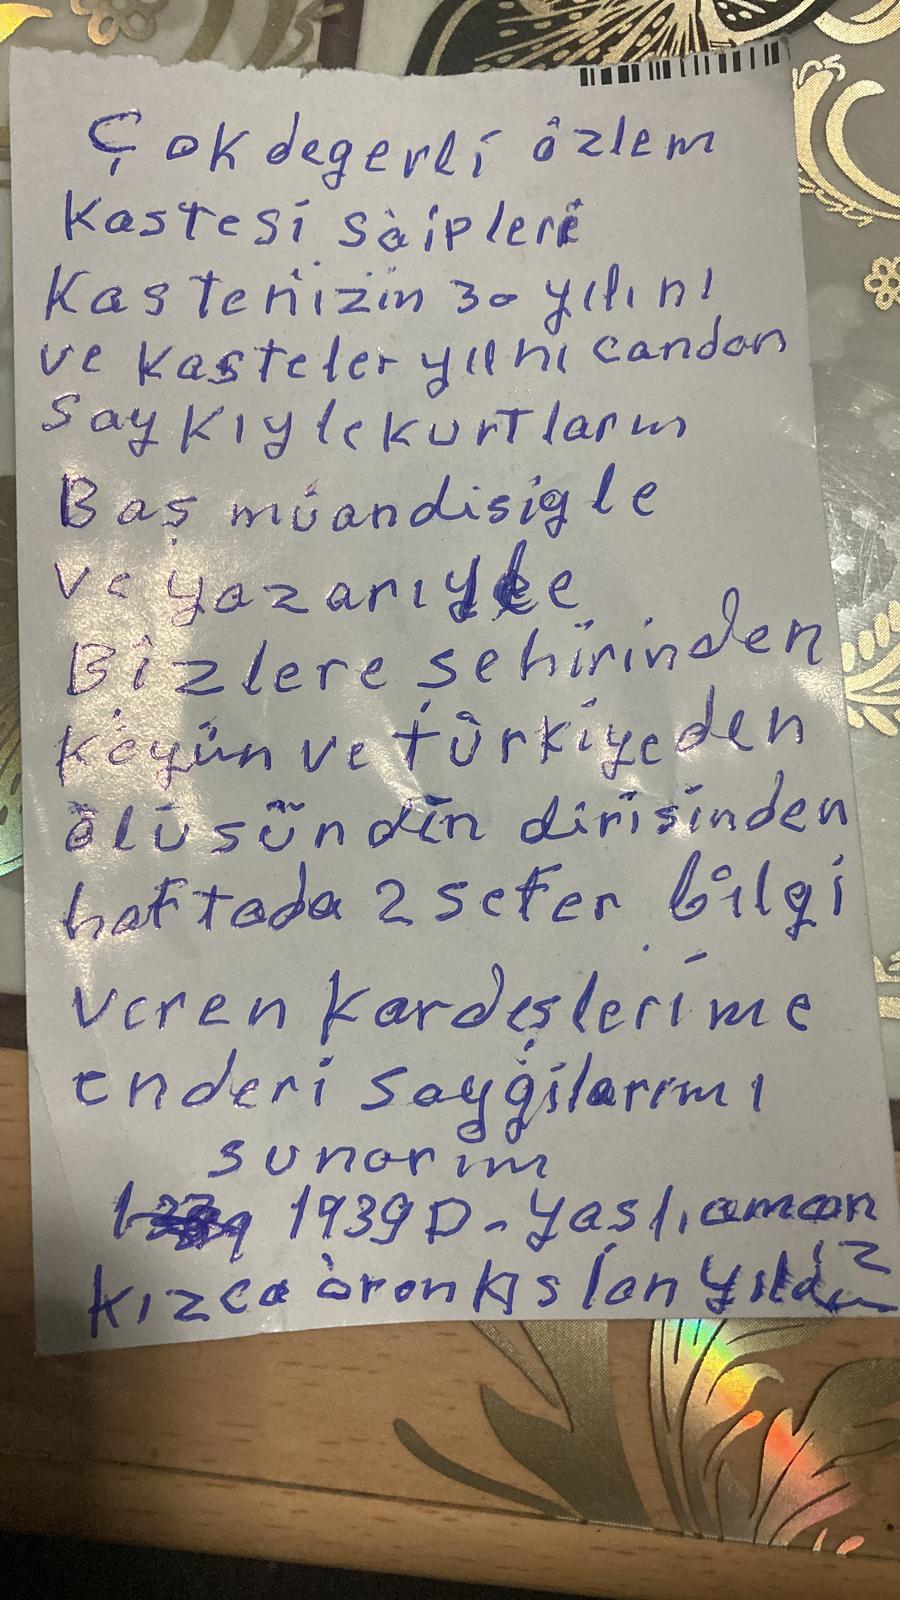 Çok degerli özlem
Kastesi sàipleri
Kastenizin 30 yılını
ve kasteler yılnı candan
saykıyle kurtların
Baş müandisigle
ve yazarıyle
Bizlere şehirinden
köyün ve türkiyeden
ölüsündin dirisinden
haftada 2 sefer bilgi
veren kardeşlerime
enderi sayğilarımı
sunarım
1939 D-yaslı aman
kızca òron